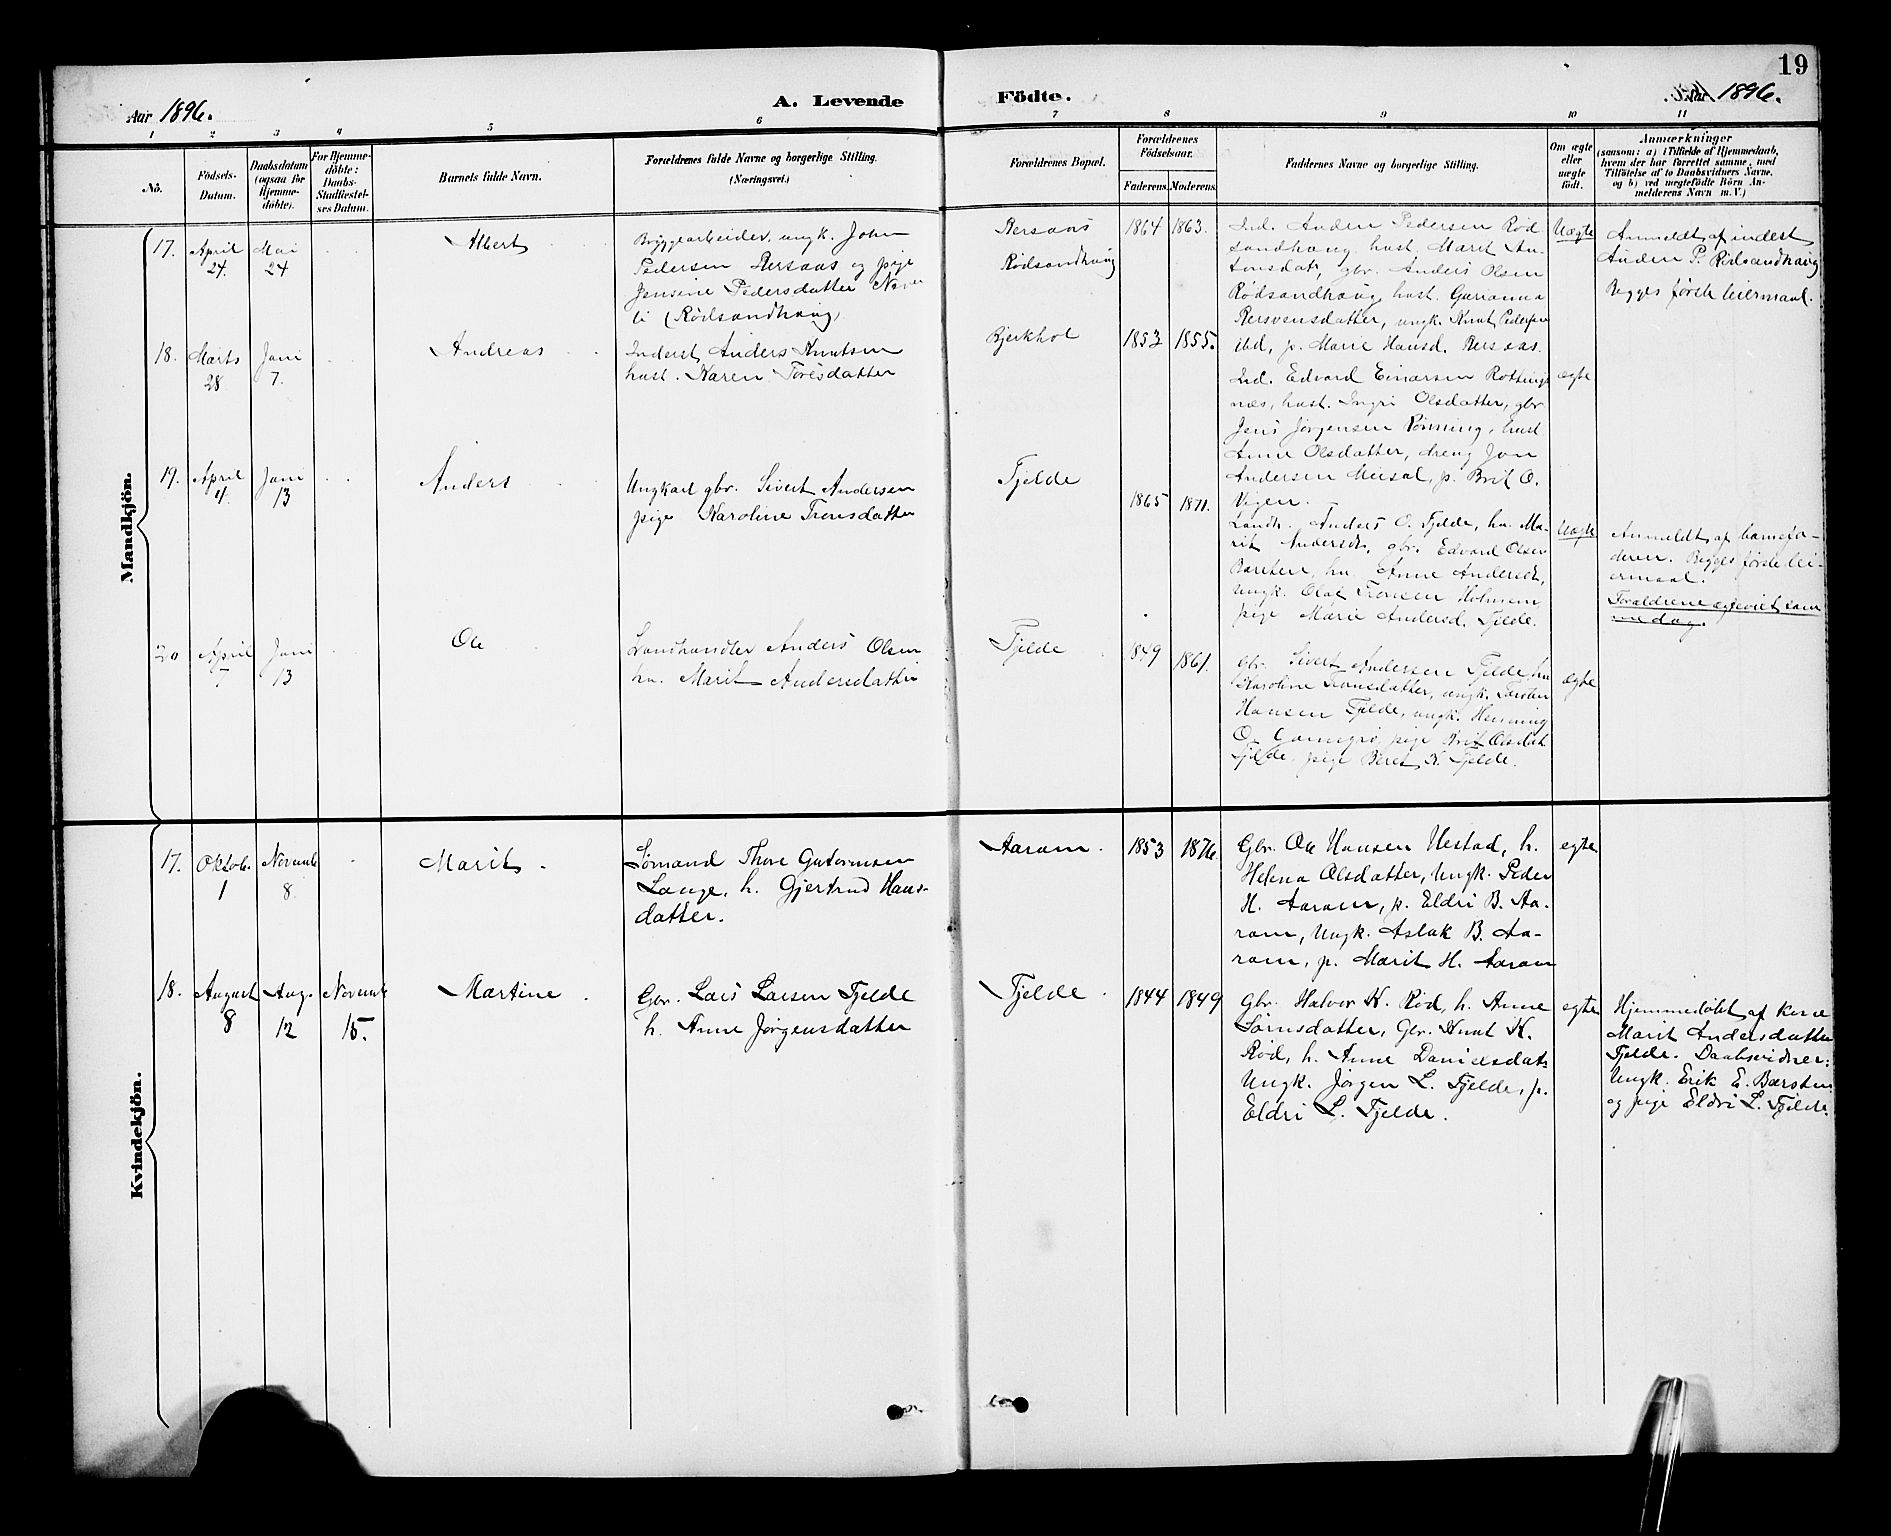 19
Aar 1896.
A. Levende
Födte.
Aar 1896.
1 2 3 4 5 6 7 8 9 10 11
No.
Födsels-
Datum.
Daabsdatum
(ogsaa for
Hjemme-
döbte).
For Hjemme-
döbte:
Daabs-
Stadfæstel-
ses Datum.
Barnets fulde Navn.
Forældrenes fulde Navne og borgerlige Stilling.
(Næringsvei.)
Forældrenes Bopæl.
Forældrenes
Födselsaar.
Faderens. Moderens.
Faddernes Navne og borgerlige Stilling.
Om ægte
eller
uægte
födt.
Anmærkninger
(saasom: a) i Tilfælde af Hjemmedaab,
hvem der har forrettet samme, med
Tilföielse af to Daabsvidners Navne,
og b) ved uægtefödte Börn An-
melderens Navn m. V.)
Mandkjön.
17.
April
24.
Mai
24
Albert
Bryggearbeider, ungk. John
Pedersen Persaas og pige
Jensine Pedersdatter
(Rødsandhaug)
Persaas
Rødsandhaug
1864 1863.
Ind. Anders Pedersen Rød
sandhaug, hust. Marit An-
tonsdat, gbr. Anders Olsen
Rødsandhaug, hust. Gurianna
datter, ungk. Knut Pedersen
ibd, p. Marie Hansd. Persaas.
Uægte
Anmeldt af inderst
Anders P. Rødsandhaug
Begges første leiermaal.
18.
Marts
28.
Juni
7.
Andreas
Inderst Anders Knutsen
hust. Karen Toresdatter
Bjerkhol
1853 1855.
Ind. Edvard Einarsen Rottings
næs, hust. Ingri Olsdatter, gbr
Jens Jørgensen Rønning, hust
Anne Olsdatter, dreng Jon
Andersen Meisal, p. Brit O.
Vegen.
ægte
19.
April
4.
Juni
13
Anders
Ungkarl gbr. Sivert Andersen
pige Karoline Tronsdatter
Tjelde
1865 1871.
Landh. Anders O. Tjelde, hu. Ma-
rit Andersdt, gbr. Edvard Olsen
Barsten, hu. Anne Andersdt,
ungk. Olaf Tronsen Holmem
pige Marie Andersd. Tjelde.
Uægte
Anmeldt af barnefa-
deren. Begges første lei-
ermaal.
Forældrene egteviet sam-
me dag.
20
April
7
Juni
13
Ole
Landhandler Anders Olsen
hu. Marit Andersdatter
Tjelde
1849 1861.
Gbr. Sivert Andersen Tjelde, hu
Karoline Tronsdatter, ungk. Torsten
Hansen Tjelde, ungk. Henning
O. pige Brit Olsdat
Tjelde, pige Beret K. Tjelde.
ægte
Kvindekjön.
17.
Oktobr.
1
Novemb
8.
Marit
Sømand Thore Gutormsen
Lange, h. Gjertrud Hans-
datter.
Aaram.
1853 1876.
Gbr. Ole Hansen Nestad, h.
Helena Olsdatter, Ungk. Peder
H. Aaram, p. Eldri B. Aa-
ram, Ungk. Aslak B. Aa-
ram, p. Marit H. Aaram
egte
18.
August
8
Aug.
12
Novemb
15.
Martine
Gbr. Lars Larsen Tjelde
h. Anne Jørgensdatter
Tjelde
1844 1849
Gbr. Halvor K. Rød, h. Anne
Sørnsdatter, Gbr. Knut K.
Rød, h. Anne Danielsdatr
Ungk. Jørgen L. Tjelde, p.
Eldri L. Tjelde.
egte
Hjemmedøbt af kone
Marit Andersdatter
Tjelde. Daabsvidner:
Ungk. Erik E. Barsten
og pige Eldri L. Tjelde.